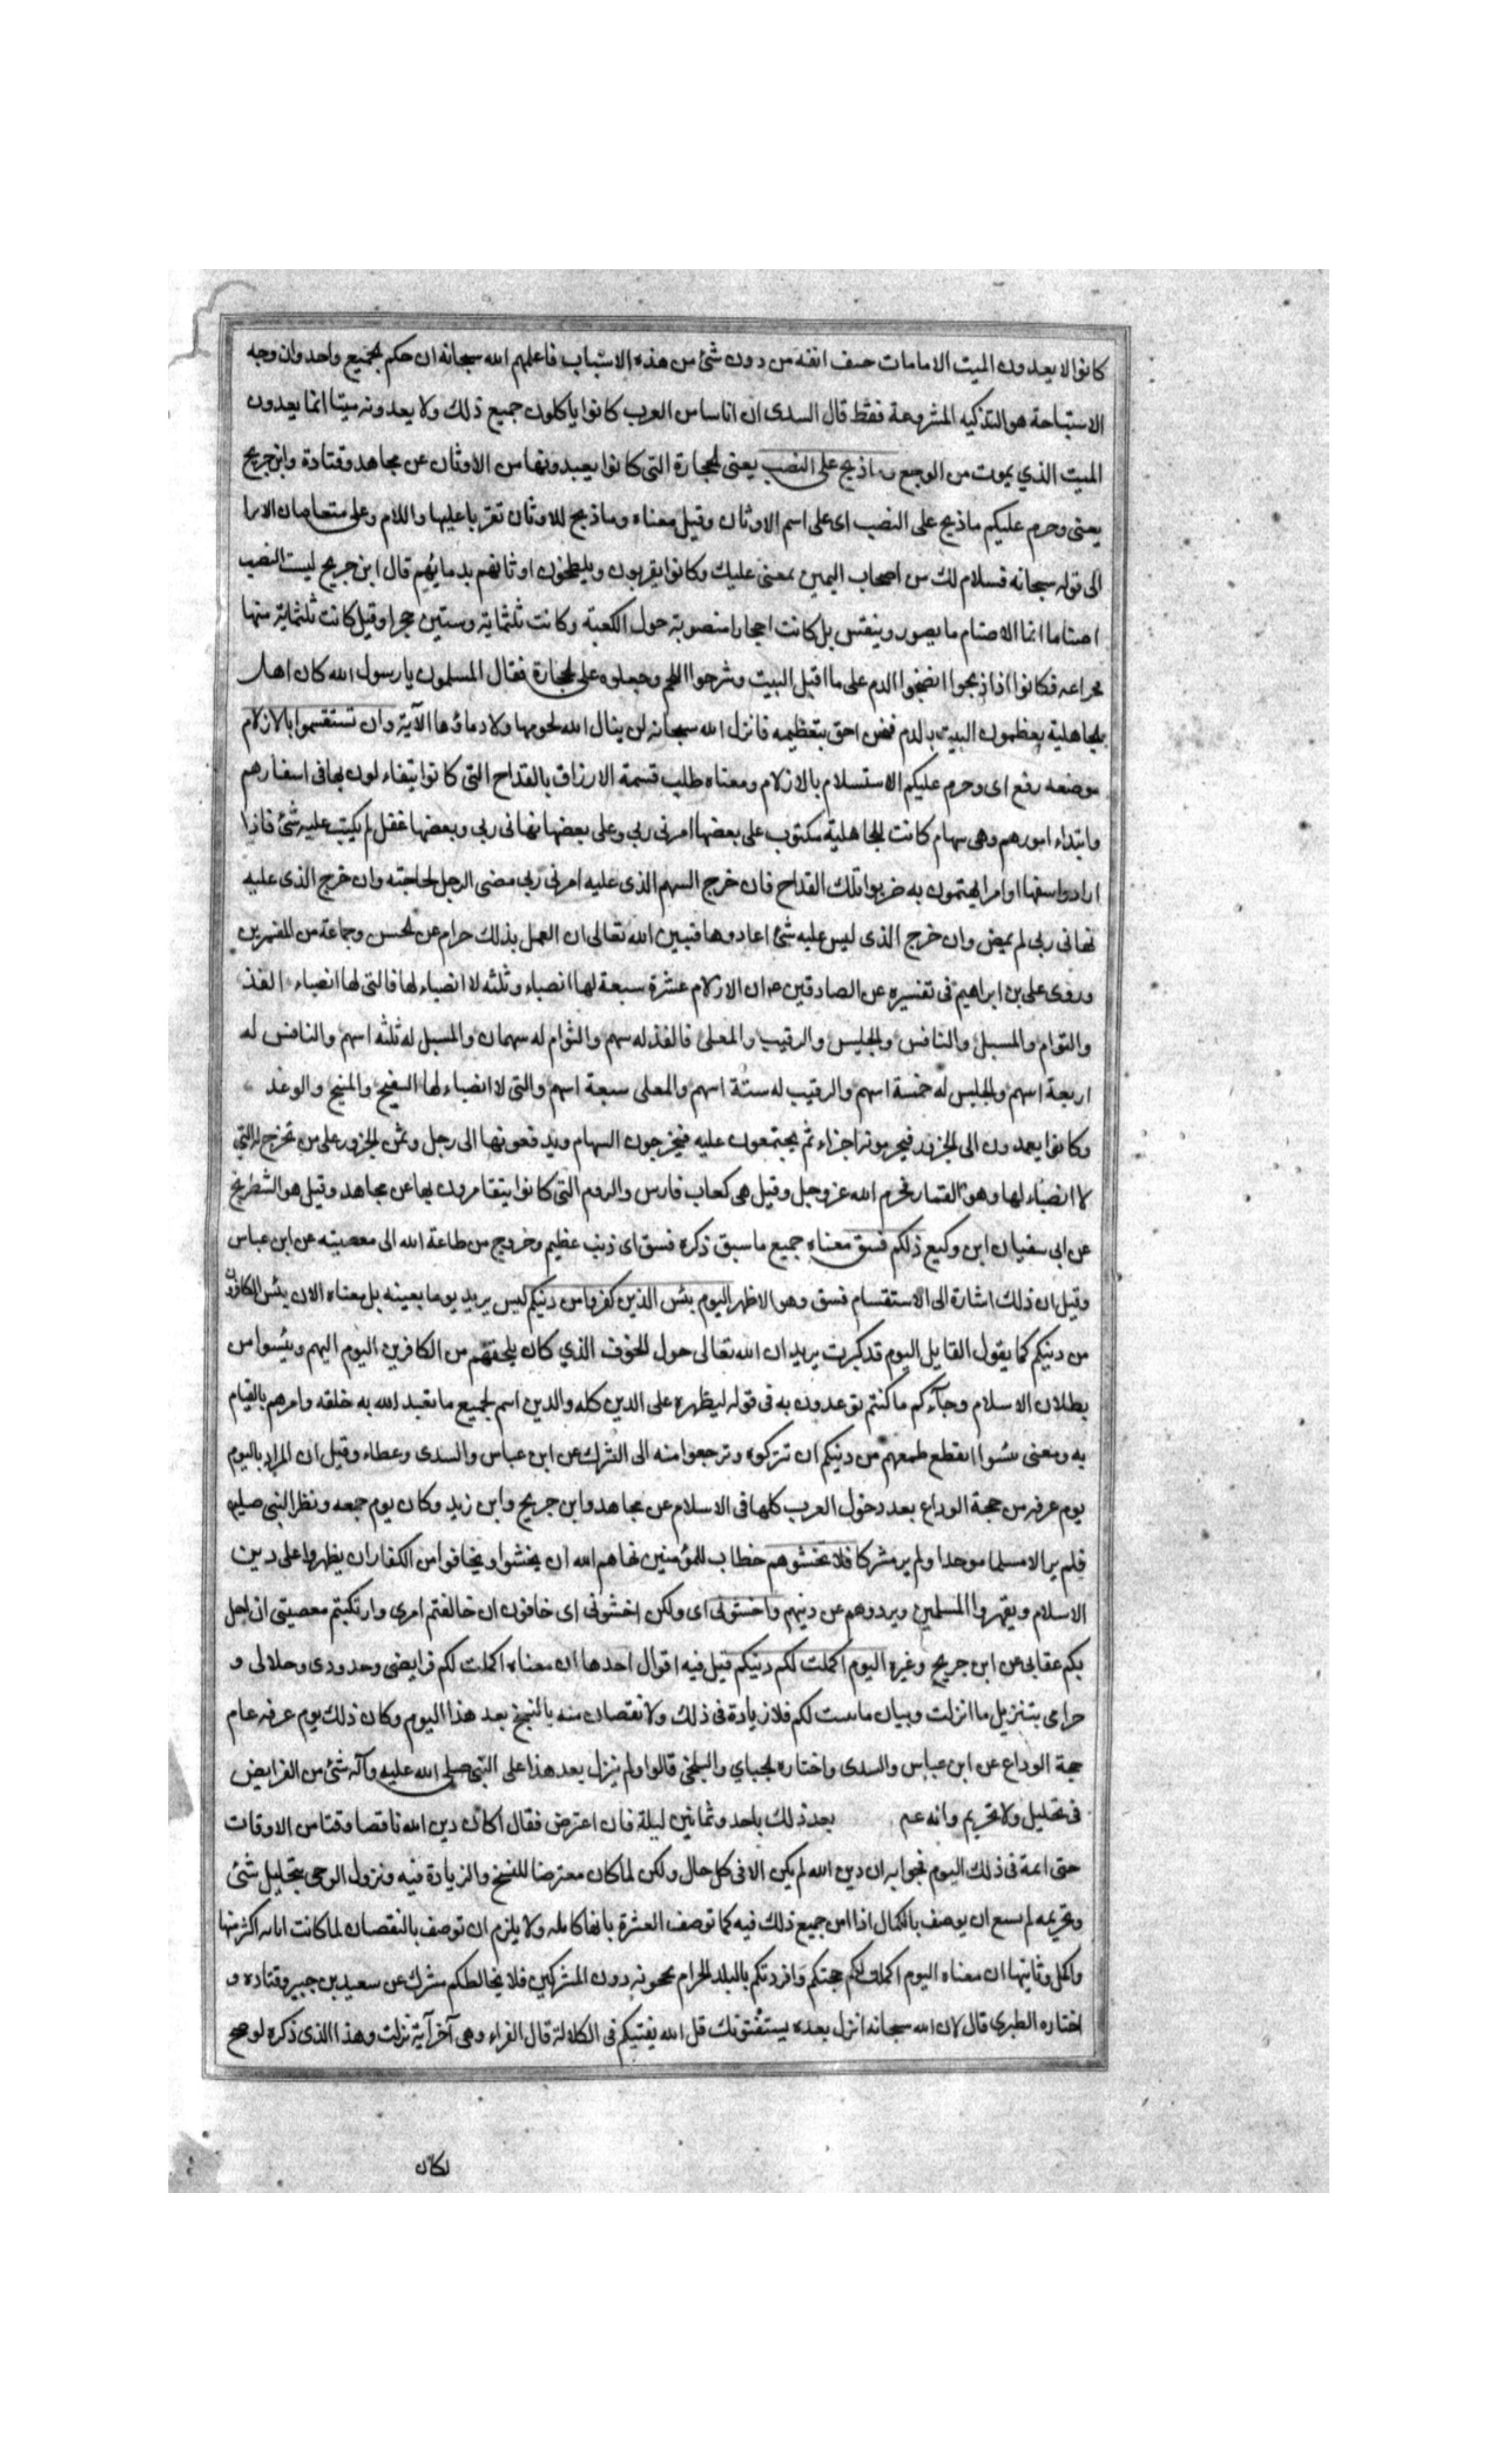 كانوا لا يعدون الميت الا مامات حتف انفه من دون شئ من هذه الاسباب فاعلمهم الله سبحانه ان حكم الجميع واحد وان وجه
الاستباحة هو التذكيه المشروعة فقط قال السدى ان اناسا من العرب كانوا ياكلون جميع ذلك ولا يعدونه ميتا انما يعدون
الميت الذي يموت من الوجع وماذبح على النصب يعنى الحجارة التى كانوا يعبدونها من الاوثان عن مجاهد وقتادة وابن جريح
يعنى وحرم عليكم ماذبح على النصب اى على اسم الاوثان وقيل معناه وماذبح للاوثان تقربا عليها واللام وعلى متعاصان الا را
الى قوله سبحانه فسلام لك من اصحاب اليمين بمعنى عليك وكانوا يقربون ويلطخون اوثانهم بدمائهم قال ابن جريح ليست النصب
اصناما انما الاصنام ما يصور وينقش بل كانت احجارا منصوبة حول الكعبة وكانت ثلثمائة وستين حجرا وقيل كانت ثلثمائة منها
فكانوا اذا ذبحوا انضخوا الدم على ما اقبل البيت وشرحوا اللحم وجعلوه على الحجارة فقال المسلمون يارسول الله كان اهل
الجاهلية يعظمون البيت بالدم فنحن احق بتعظيمه فانزل الله سبحانه لن ينال الله لحومها ولا دماؤها الآية وان تستقسموا بالازلام
موضعه رفع اى وحرم عليكم الاستسلام بالازلام ومعناه طلب قسمة الارزاق بالقداح التى كانوا يتفاءلون بها فى اسفارهم
وابتداء امورهم وهى سهام كانت للجاهلية مكتوب على بعضها امرنى ربى وعلى بعضها نهانى ربى وبعضها غفل لم يكتب عليه شئ فاذا
ارادوا سفرا او امرا يهتمون به ضربوا تلك القداح فان خرج السهم الذى عليه امرنى ربى مضى الرجل لحاجته وان خرج الذى عليه
نهانى ربى لم يمض وان خرج الذى ليس عليه شئ اعادوها فتبين الله تعالى ان العمل بذلك حرام عن الحسن وجماعة من المفسرين
وروى على بن ابراهيم فى تفسيره عن الصادقين ع ان الازلام عشرة سبعة لها انصباء وثلثه لا انصباء لها فالتى لها انصباء الفذ
والتوام والمسبل والنافس والجليس والرقيب والمعلى فالفذ له سهم والتوام له سهمان والمسبل له ثلثه اسهم والنافس له
اربعة اسهم والجليس له خمسة اسهم والرقيب له ستة اسهم والمعلى سبعة اسهم والتى لا انصباء لها السفيح والمنيح والوغد
وكانوا يعمدون الى الجزور فيجزؤنه اجزاء ثم يجتمعون عليه فيخرجون السهام ويدفعونها الى رجل وثمن الجزور على من تخرج له التى
لا انصباء لها وهو القمار فحرم الله عز وجل وقيل هى كعاب فارس والروم التى كانوا يتقامرون بها عن مجاهد وقيل هو الشطرنج
عن ابى سفيان ابن وكيع ذلكم فسق معناه جميع ماسبق ذكره فسق اى ذنب عظيم وخروج من طاعة الله الى معصيته عن ابن عباس
وقيل ان ذلك اشارة الى الاستقسام فسق وهو الاظهر اليوم يئس الذين كفروا من دينكم ليس يريد يوما بعينه بل معناه الان يئس الكافرون
من دينكم كما يقول القايل اليوم قد كبرت يريد ان الله تعالى حول الخوف الذي كان يلحقهم من الكافرين اليوم اليهم ويئسوا من
بطلان الاسلام وجآءكم ماكنتم توعدون به فى قوله ليظهره على الدين كله والدين اسم لجميع ماتعبد الله به خلقه وامرهم بالقيام
به ومعنى يئسوا انقطع طمعهم من دينكم ان تتركوه وترجعوا منه الى الشرك عن ابن عباس والسدى وعطاء وقيل ان المراد باليوم
يوم عرفه من حجة الوداع بعد دخول العرب كلها فى الاسلام عن مجاهد وابن جريح وابن زيد وكان يوم جمعه ونظر النبى
فلم ير الا مسلما موحدا ولم ير مشركا فلا تخشوهم خطاب للمؤمنين نهاهم الله ان يخشوا ويخافوا من الكفار ان يظهروا على دين
الاسلام ويقهروا المسلمين ويردوهم عن دينهم واخشونى اى ولكن اخشونى اى خافون ان خالفتم امرى وارتكبتم معصيتى ان احل
بكم عقابى عن ابن جريح وغيره اليوم اكملت لكم دينكم قيل فيه اقوال احدها ان معناه اكملت لكم فرايضى وحدودى وحلالى و
حرامى بتنزيل ما انزلت وبيان مابينت لكم فلا زيادة فى ذلك ولا نقصان منه بالنسخ بعد هذا اليوم وكان ذلك يوم عرفه عام
حجة الوداع عن ابن عباس والسدى واختاره الجباي والبلخى قالوا ولم ينزل بعد هذا على النبى صلى الله عليه وآله شئ من الفرايض
فى تحليل ولا تحريم وانه عم بعد ذلك باحد وثمانين ليلة فان اعترض فقال اكان دين الله ناقصا وقتا من الاوقات
حتى اتمه فى ذلك اليوم فجوابه ان دين الله لم يكن الا فى كل حال ولكن لما كان معترضا للنسخ والزيادة فيه ونزول الوحى بتحليل شئ
وتحريمه لم يمتنع ان يوصف بالكمال اذا امن جميع ذلك فيه كما توصف العشرة بانها كامله ولا يلزم ان توصف بالنقصان لما كانت المائه اكثر منها
واكمل وثانيها ان معناه اليوم اكملت لكم حجتكم وافردتكم بالبلد الحرام تحجونه دون المشركين فلا يخالطكم مشرك عن سعيد بن جبير وقتاده و
اختاره الطبرى قال لان الله سبحانه انزل بعده يستفتونك قل الله يفتيكم فى الكلالة قال الفراء وهى آخر آية نزلت وهذا الذى ذكره لو صح
لكان